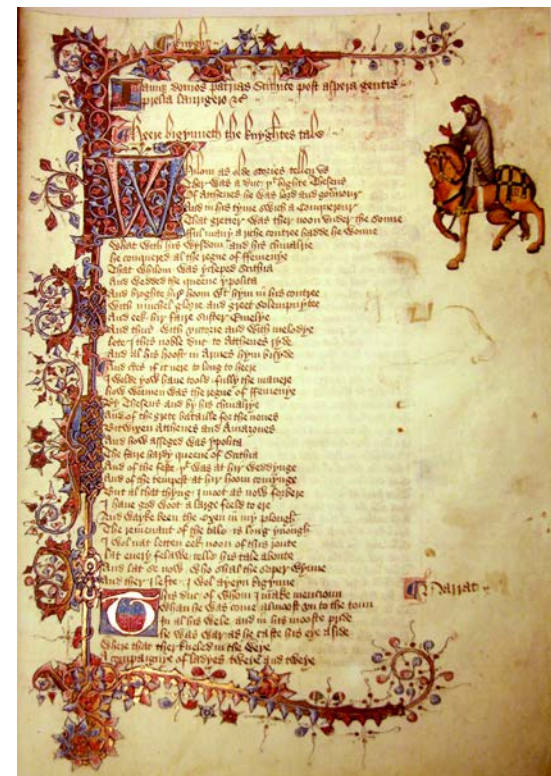 Knyght
Iamque domos patrias Scithice post aspera gentis
prelia laurigero &c
Heere bigynneth the knyghtes tale
Whilom as olde stories tellen us
Ther was a duc þt highte Theseus
Of Atthenes he was lord and gouernour
And in his tyme swich a Conquerour
That gretter was ther noon under the sonne
fful many a riche contree hadde he wonne
What with his wysdom and his chiualrie
he conquered al the regne of ffemenye
That whilom was ycleped Scithia
And wedded the queene ypolita
And broghte hir hoom wt hym in his contree
With muchel glorie and greet solempnytee
And eek hir faire suster Emelye
And thus with victorie and with melodye
lete I this noble duc to Atthenes ryde
And al his hoost in Armes hym bisyde
And certes if it nere to long to heere
I wolde yow haue toold fully the manere
how wonnen was the regne of ffemenye
By Theseus and by his chiualrye
And of the grete bataille for the nones
Bitwixen Atthenes and Amazones
And how asseged was ypolita
The faire hardy queene of Scithia
And of the feste þt was at hir weddynge
And of the tempest at hir hoom comynge
But al that thyng I moot as now forbere
I haue god woot a large feeld to ere
And wayke been the oxen in my plough
The remenant of the tale is long ynough
I wol nat letten eek noon of this route
lat euery felawe telle his tale aboute
And lat se now who shal the soper wynne
And ther I lefte I wol ayeyn bigynne
This duc of whom I make mencioun
Whan he was come almoost vn to the toun
In al his wele and in his mooste pride
he was war as he caste his eye aside
Where that ther kneled in the weye
A compaignye of ladyes tweye and tweye
Narrat